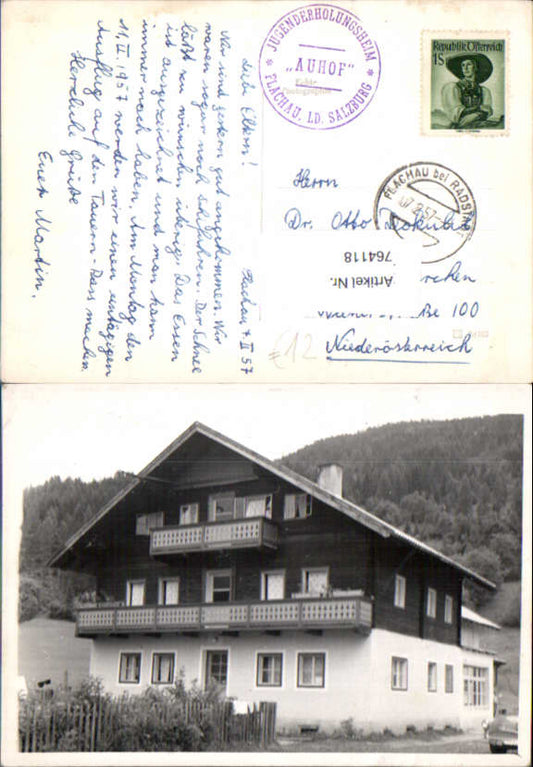 Flachau 7. II 57
Liebe Eltern!
Wir sind gestern gut angekommen. Wir
waren sogar noch skifahren. Der Schnee
läßt zu wünschen übrig. Das Essen
ist ausgezeichnet und man kann
immer noch haben. Am Montag den
11. II. 1957 werden wir einen eintägigen
Ausflug auf den Tauern-Pass machen.
Herzliche Grüße
Euer Martin.
JUGENDERHOLUNGSHEIM
"AUHOF"
FLACHAU, LD. SALZBURG
Echte
Photographie
Republik Österreich
1S
FLACHAU bei RADSTADT
Herrn
Dr. Otto
Artikel Nr.
764118
rchen
ße 100
Niederösterreich
€12